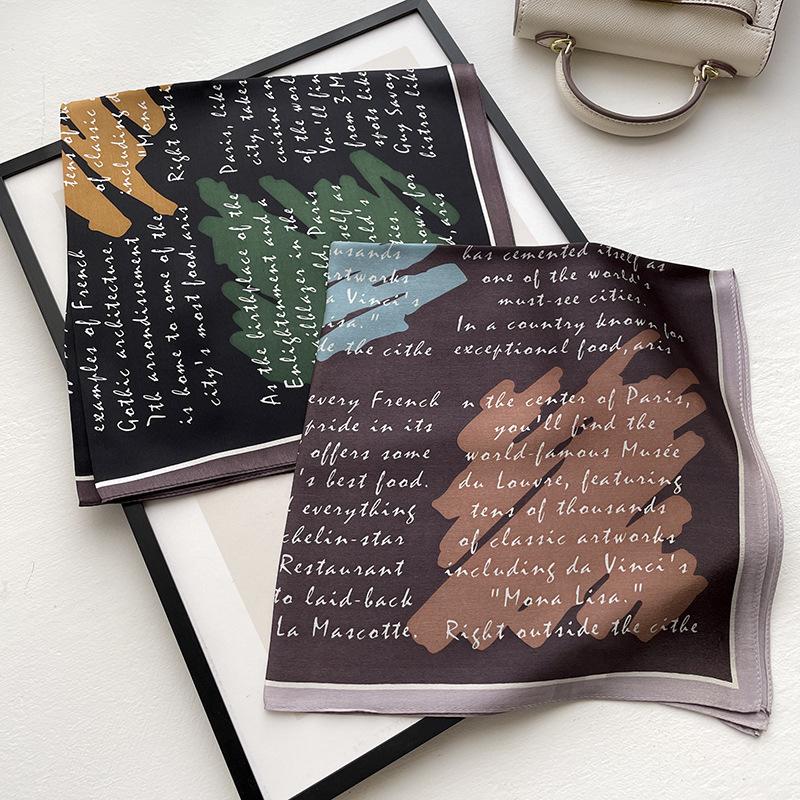 tens of
of classic
including
"Mona
Right
examples of French
Gothic architecture.
7th arrondissement
is home to some of the
city's most food, aris
Paris, like
city, takes
cuisine
of the
You'll
from
spots like
Guy Savoy
bistros like
As the birthplace of the
Enlightenment and a
in the
Paris
as
for
aris
artworks
Vinci's
the cithe
every French
pride in its
offers some
's best food.
everything
chelin-star
Restaurant
to laid-back
La Mascotte.
has cemented itself as
one of the world's
must-see cities.
In a country known for
exceptional food, aris
n the center of Paris,
you'll find the
world-famous Musée
du Louvre, featuring
tens of thousands
of classic artworks
including da Vinci's
"Mona Lisa."
Right outside the cithe